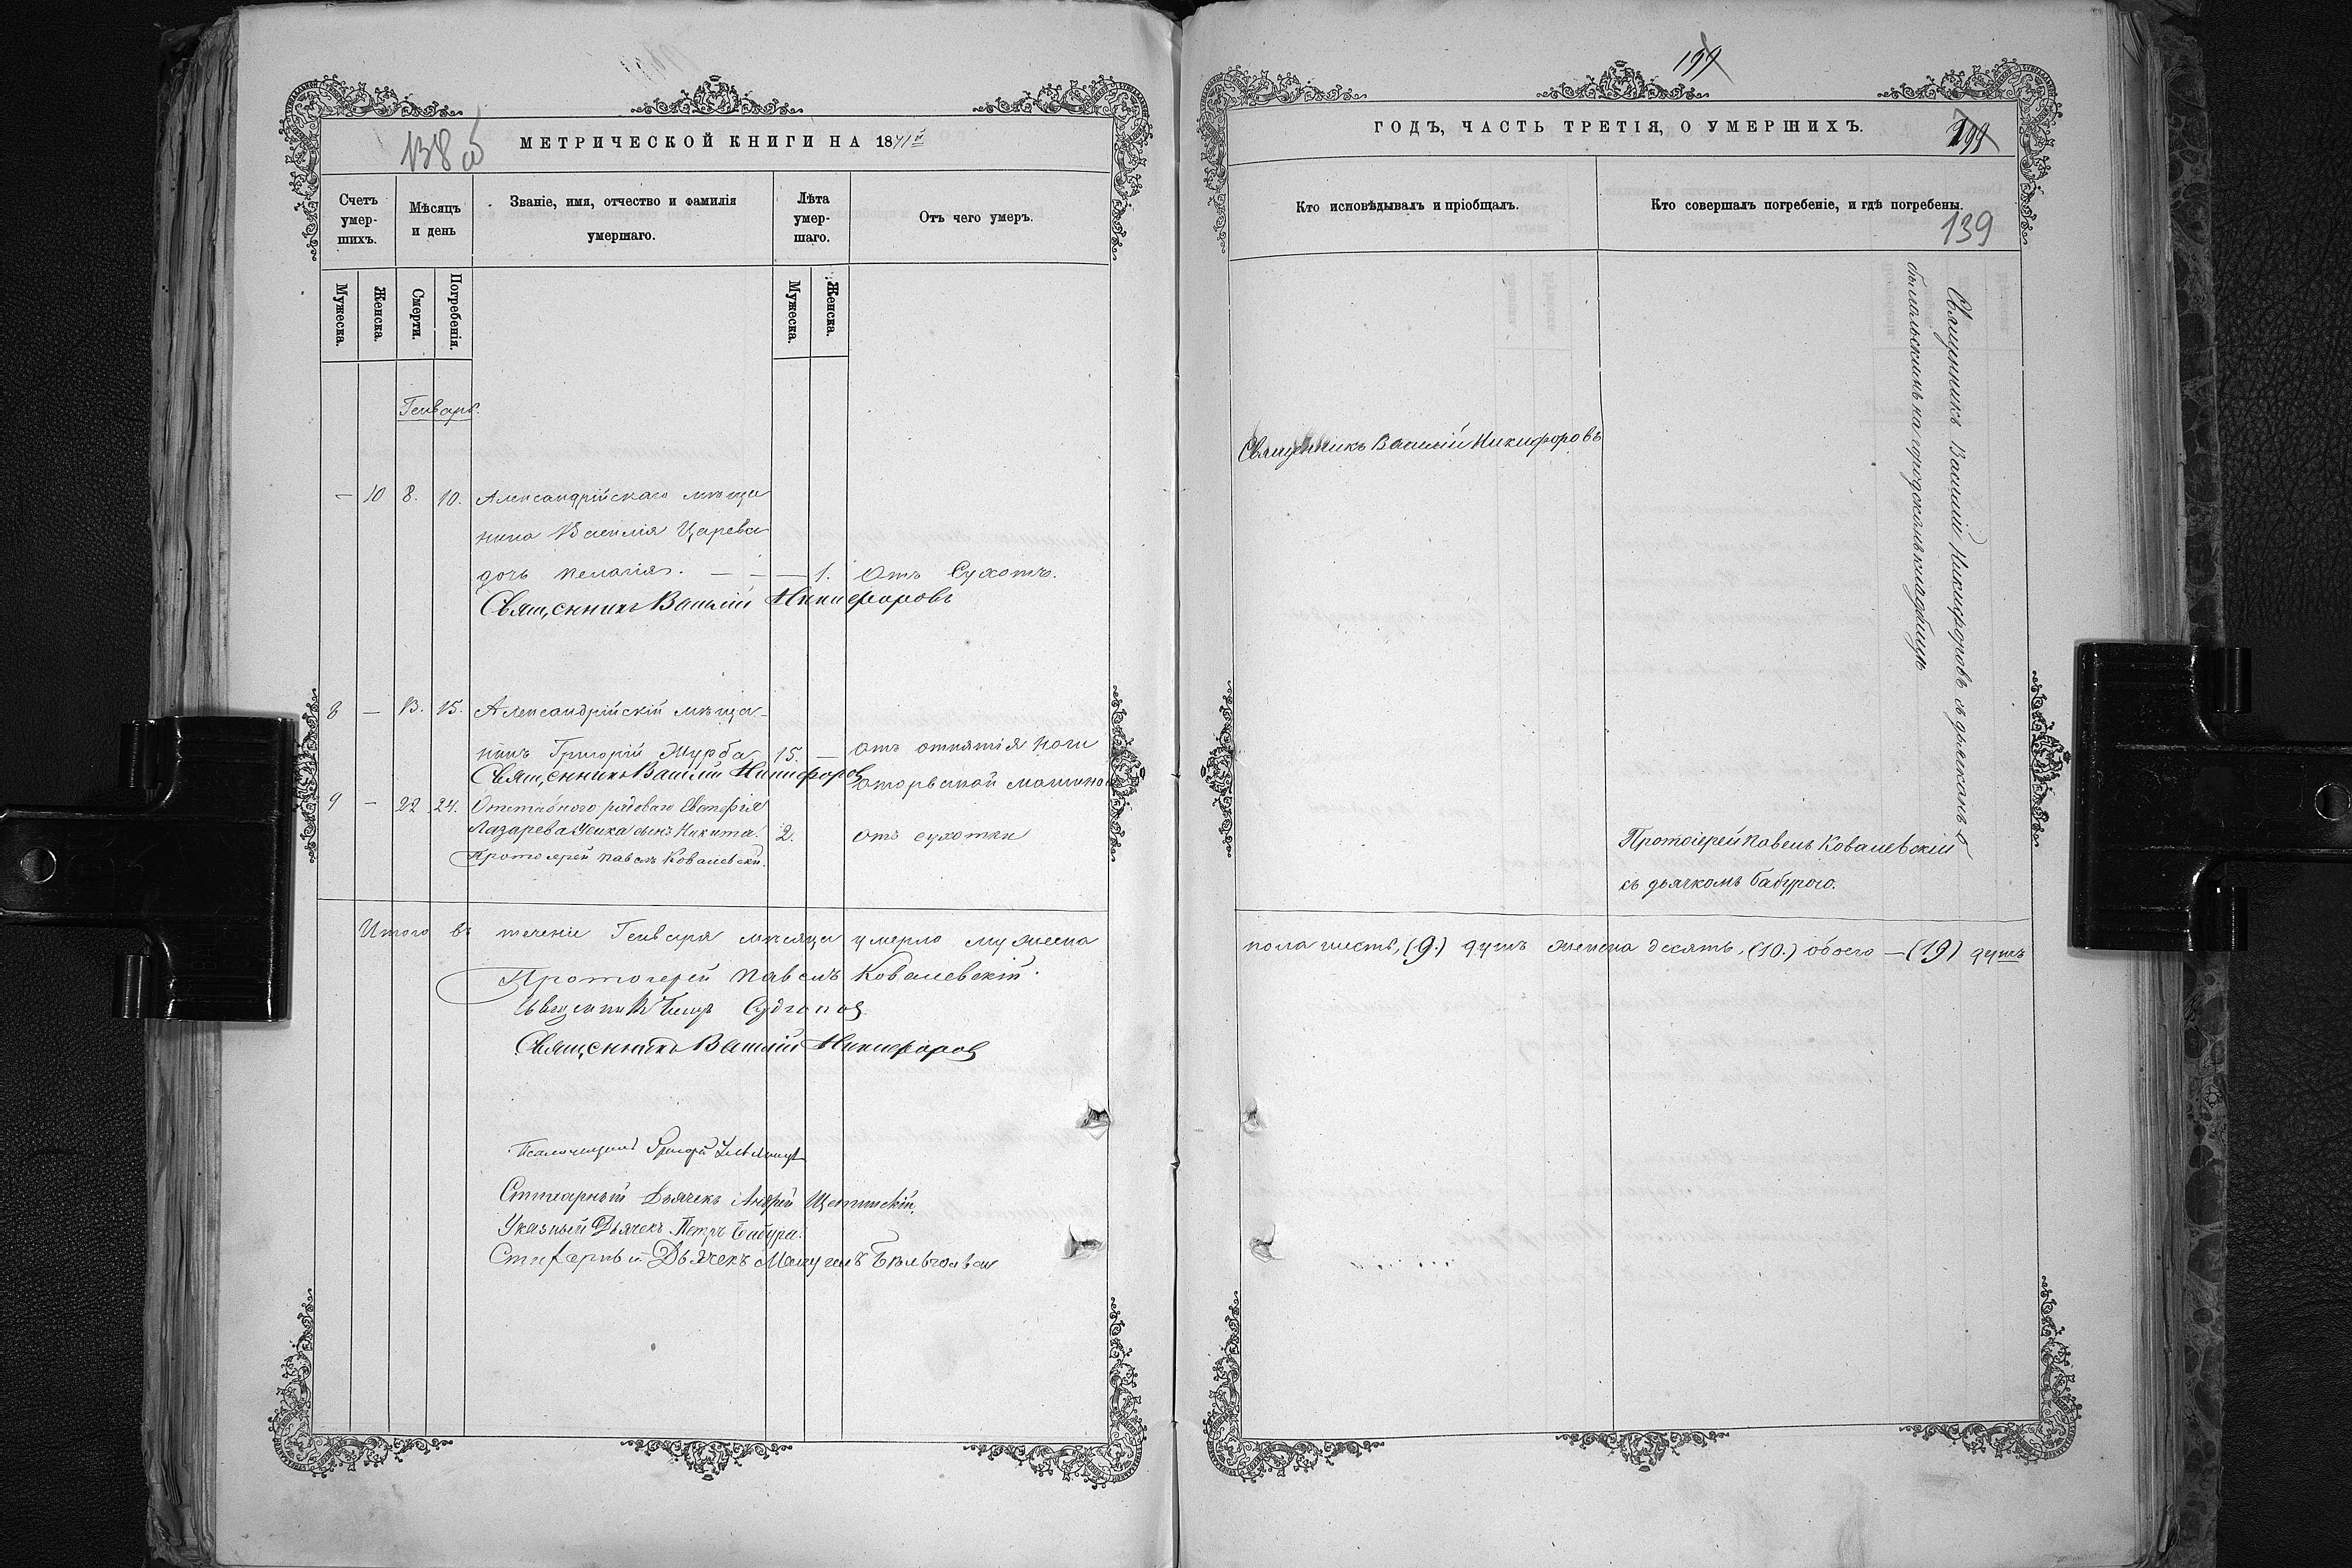 138 об
МЕТРИЧЕСКОЙ КНИГИ НА 1871й
Счетъ умер-шихъ.
Мѣсяцъ и день
Званіе, имя, отчество и фамилія умершаго.
Лѣта умер-шаго.
Отъ чего умеръ.
Мужеска.
Женска.
Смерти.
Погребенія.
Мужеска.
Женска.
Генварь.
— 10 8. 10. Александрійскаго мѣща
нина Василія Царева
дочь Пелагія. — — — 1. Отъ Сухотъ.
Священникъ Василій Никифоровъ
8 — 13. 15. Александрійскій мѣща-
нинъ Григорій Журба 15. — отъ отнятія ноги
Священникъ Василій Никифоровъ оторваной машиной
9 — 22 24. Отставного рядового Евстафія
Лазарева сынъ Никита. 2. отъ сухотки
Протоіерей Павелъ Ковалевскій.
Итого въ теченіе Генваря мѣсяца умерло мужеска
Протоіерей Павелъ Ковалевскій.
Священникъ
Священникъ Василій Никифоровъ
Псаломщикъ Григорій
Дьячекъ Андрей Щетинскій.
Указный Дьячекъ Петръ Бабура.
Дьячекъ
199
ГОДЪ, ЧАСТЬ ТРЕТІЯ, О УМЕРШИХЪ.
199
Кто исповѣдывалъ и пріобщалъ.
Кто совершалъ погребеніе, и гдѣ погребены.
139
Священникъ Василій Никифоровъ
Священникъ Василій Никифоровъ съ дьячкомъ
на городскомъ кладбищѣ
Протоіерей Павелъ Ковалевскій
съ дьячкомъ Бабурою.
пола шесть, (9.) душъ женска десять, (10.) обоего — (19) душъ